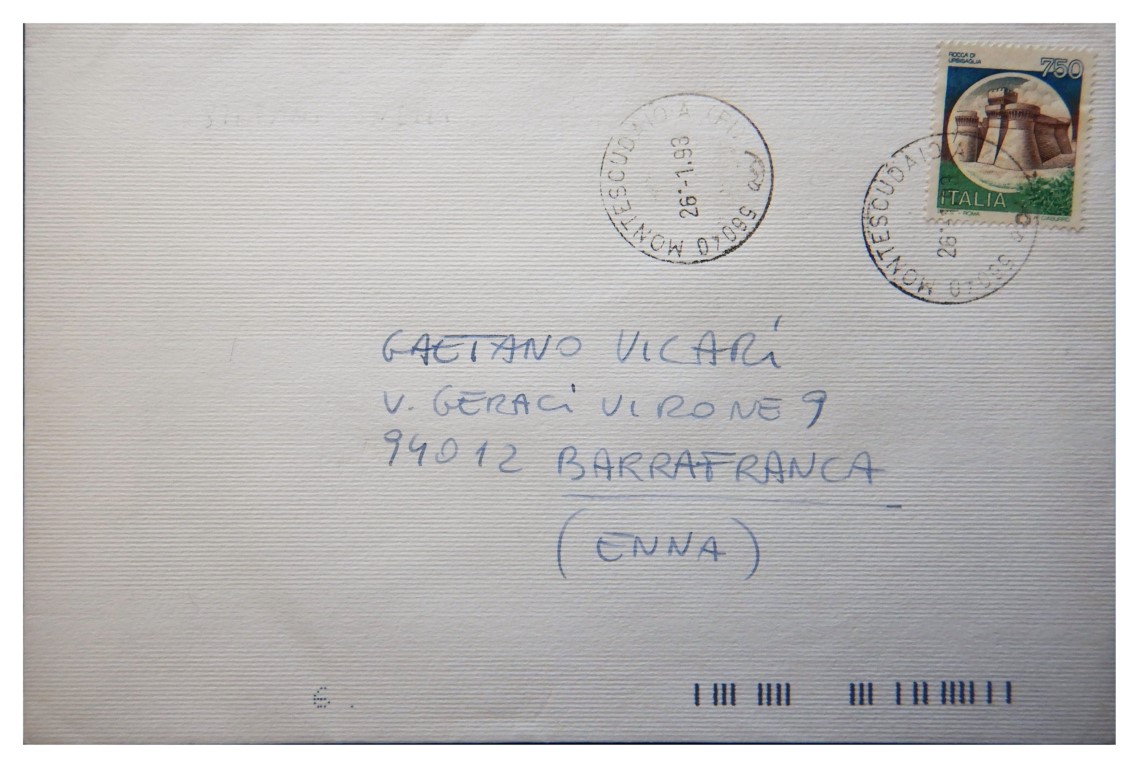 ROCCA DI
URBISAGLIA
750
ITALIA
ROMA
56040 MONTESCUDAIO
26.-1.93
56040 MONTESCUDAIO
26.
GAETANO VICARI
V. GERACI VIRONE 9
94012 BARRAFRANCA
(ENNA)